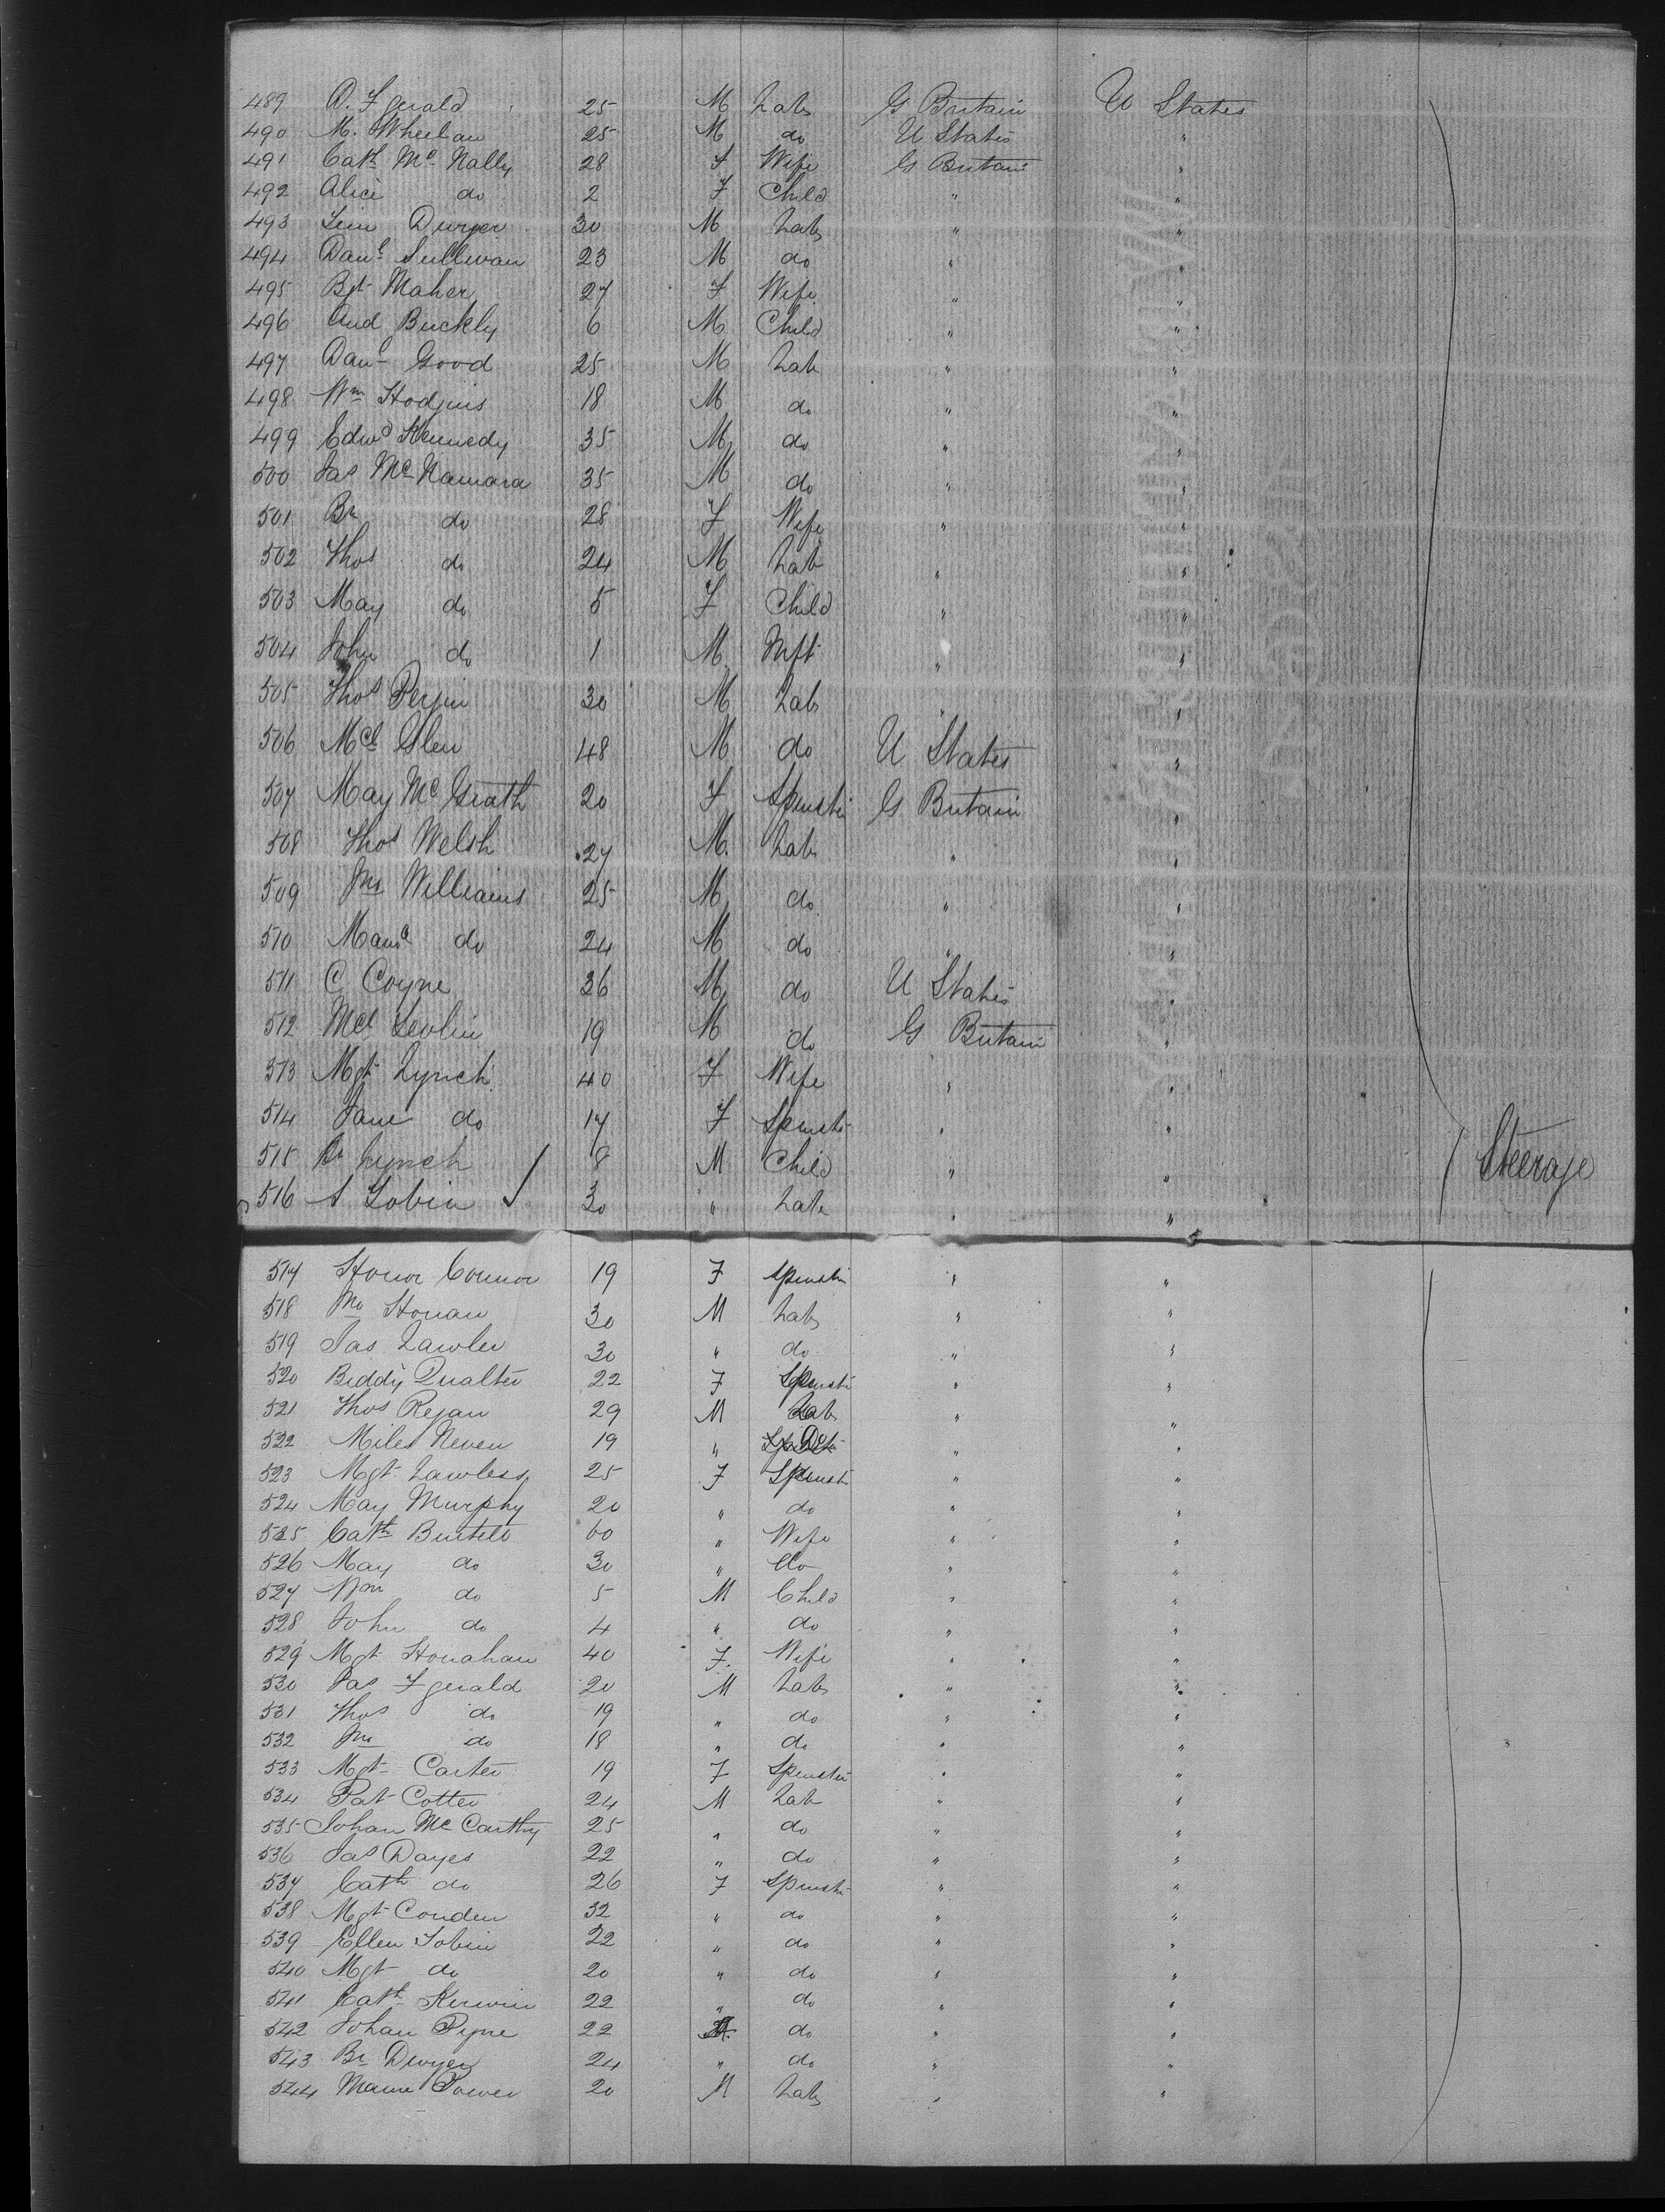 489 D. Fgerald 25 M Lab G Britain U States
490 M. Wheelan 25 M do U States "
491 Cath Mc Nally 28 F Wife G Britain "
492 Alice do 2 F Child " "
493 Dwyer 30 M Lab " "
494 Danl Sullivan 23 M do " "
495 Bgt Maher 27 F Wife " "
496 And Buckly 6 M Child " "
497 Danl Good 25 M Lab " "
498 Wm Hodgins 18 M do " "
499 Edwd Kennedy 35 M do " "
500 Jas McNamara 35 M do " "
501 Br do 28 F Wife " "
502 Thos do 24 M Lab " "
503 May do 5 F Child " "
504 John do 1 M Inft " "
505 Thos 30 M Lab " "
506 Mcl Glen 48 M do U States "
507 May McGrath 20 F Spinster G Britain "
508 Thos Welsh 27 M Lab " "
509 Jno Williams 25 M do " "
510 do 24 M do " "
511 C Coyne 36 M do U States "
512 Mcl 19 M do G Britain "
513 Mgt Lynch 40 F Wife " "
514 Jane do 17 F Spinster " "
515 Lynch 8 M Child " " Steerage
516 Tobin 30 " Lab " "
517 Honor Connor 19 F Spinster " "
518 Jno Honan 30 M Lab " "
519 Jas Lawler 30 " do " "
520 Biddy Qualter 22 F Spinster " "
521 Thos Regan 29 M Lab " "
522 Miles Neven 19 " Do " "
523 Mgt Lawless 25 F Spinst " "
524 May Murphy 20 " do " "
525 Cath 60 " Wife " "
526 May do 30 " do " "
527 Wm do 5 M Child " "
528 John do 4 " do " "
529 Mgt Honahan 40 F Wife " "
530 Jas Fgerald 20 M Lab " "
531 Thos do 19 " do " "
532 Jno do 18 " do " "
533 Mgt Carter 19 F Spinster " "
534 Pat Cotter 24 M Lab " "
535 Johan McCarthy 25 " do " "
536 Jas Dayes 22 " do " "
537 Cath do 26 F Spinst " "
538 Mgt Conden 32 " do " "
539 Ellen Tobin 22 " do " "
540 Mgt do 20 " do " "
541 Cath Kerwin 22 " do " "
542 Johan Pyne 22 do " "
543 Br Dwyer 24 " do " "
544 Power 20 M Lab " "